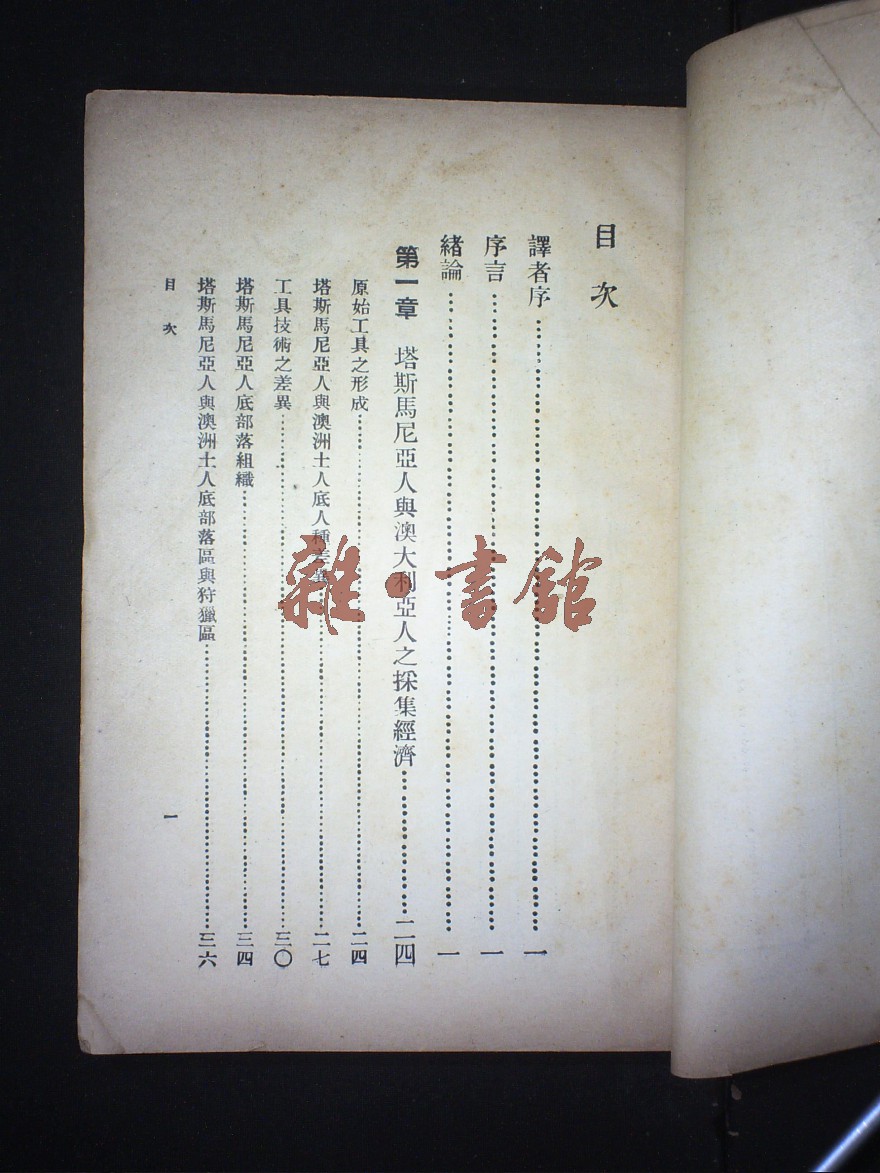 目次
譯者序……一
序言……一
緒論……一
第一章 塔斯馬尼亞人與澳大利亞人之採集經濟……二四
原始工具之形成……二四
塔斯馬尼亞人與澳洲土人底人種差異……二七
工具技術之差異……三〇
塔斯馬尼亞人底部落組織……三四
塔斯馬尼亞人與澳洲土人底部落區與狩獵區……三六
目次
一
雜·書館